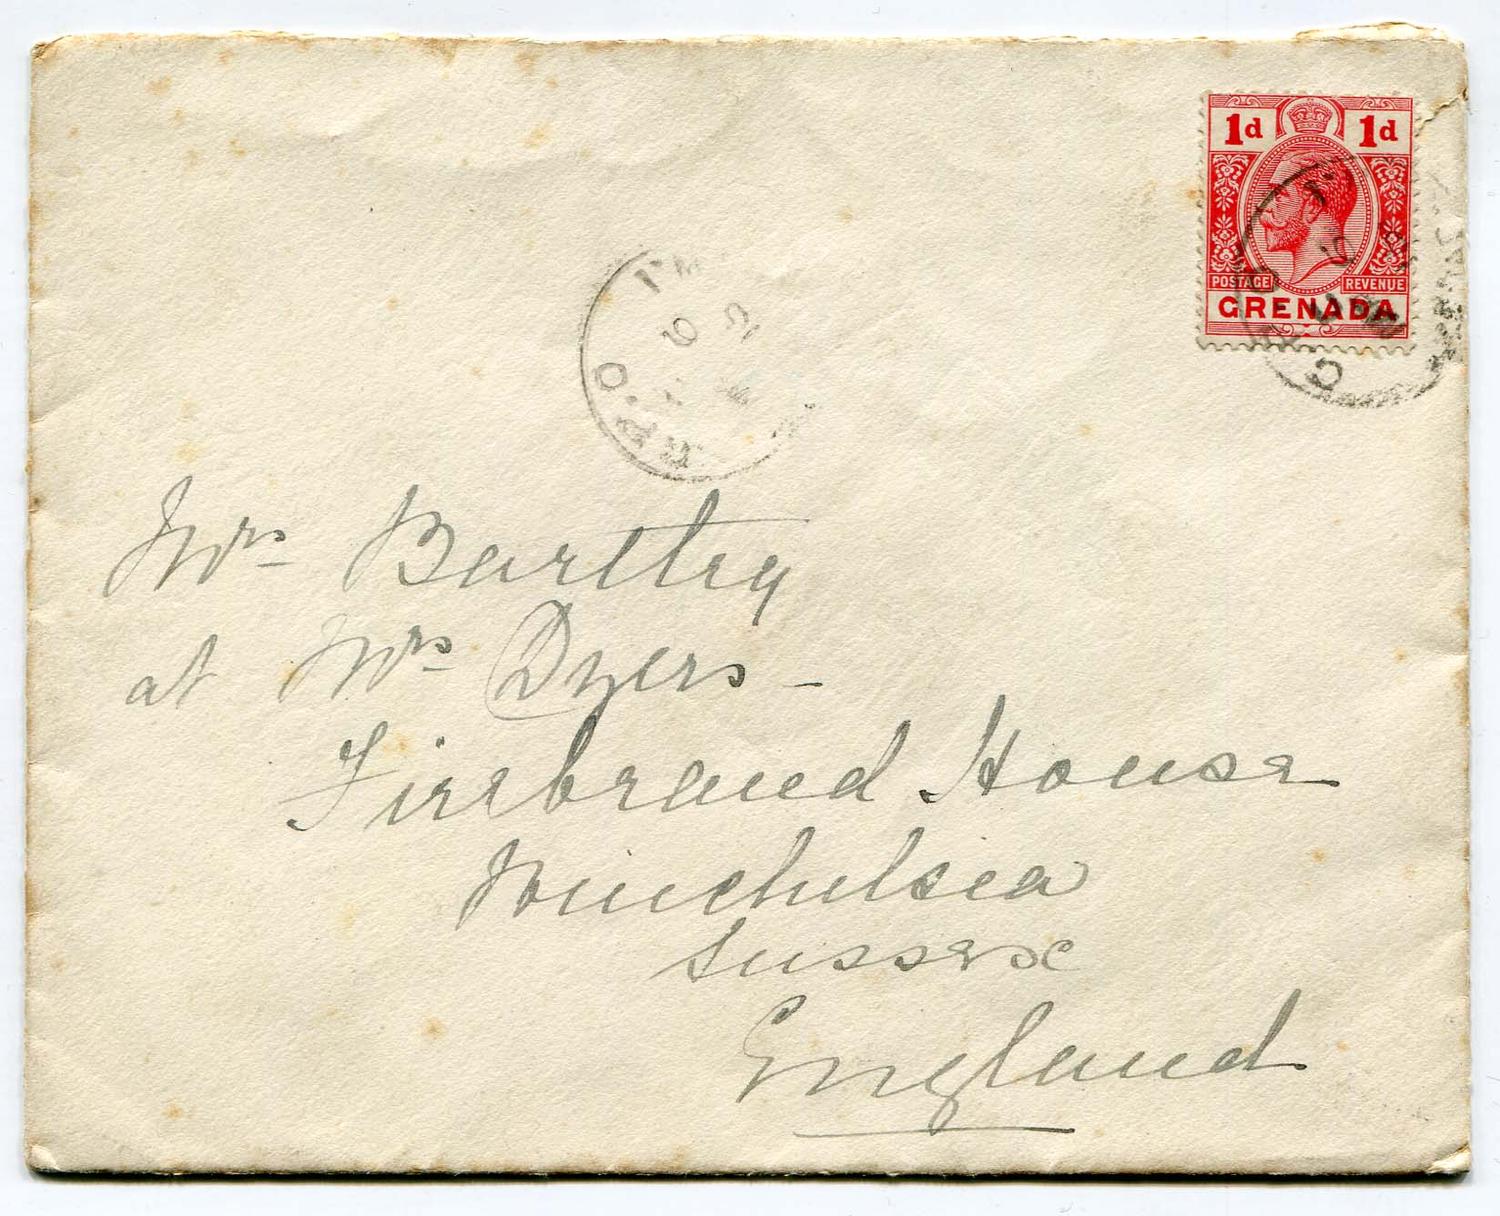 1d 1d
POSTAGE REVENUE
GRENADA
G.P.O
Mrs Bartley
at Mrs Dyers –
Firebrand House
Winchelsea
Sussex
England